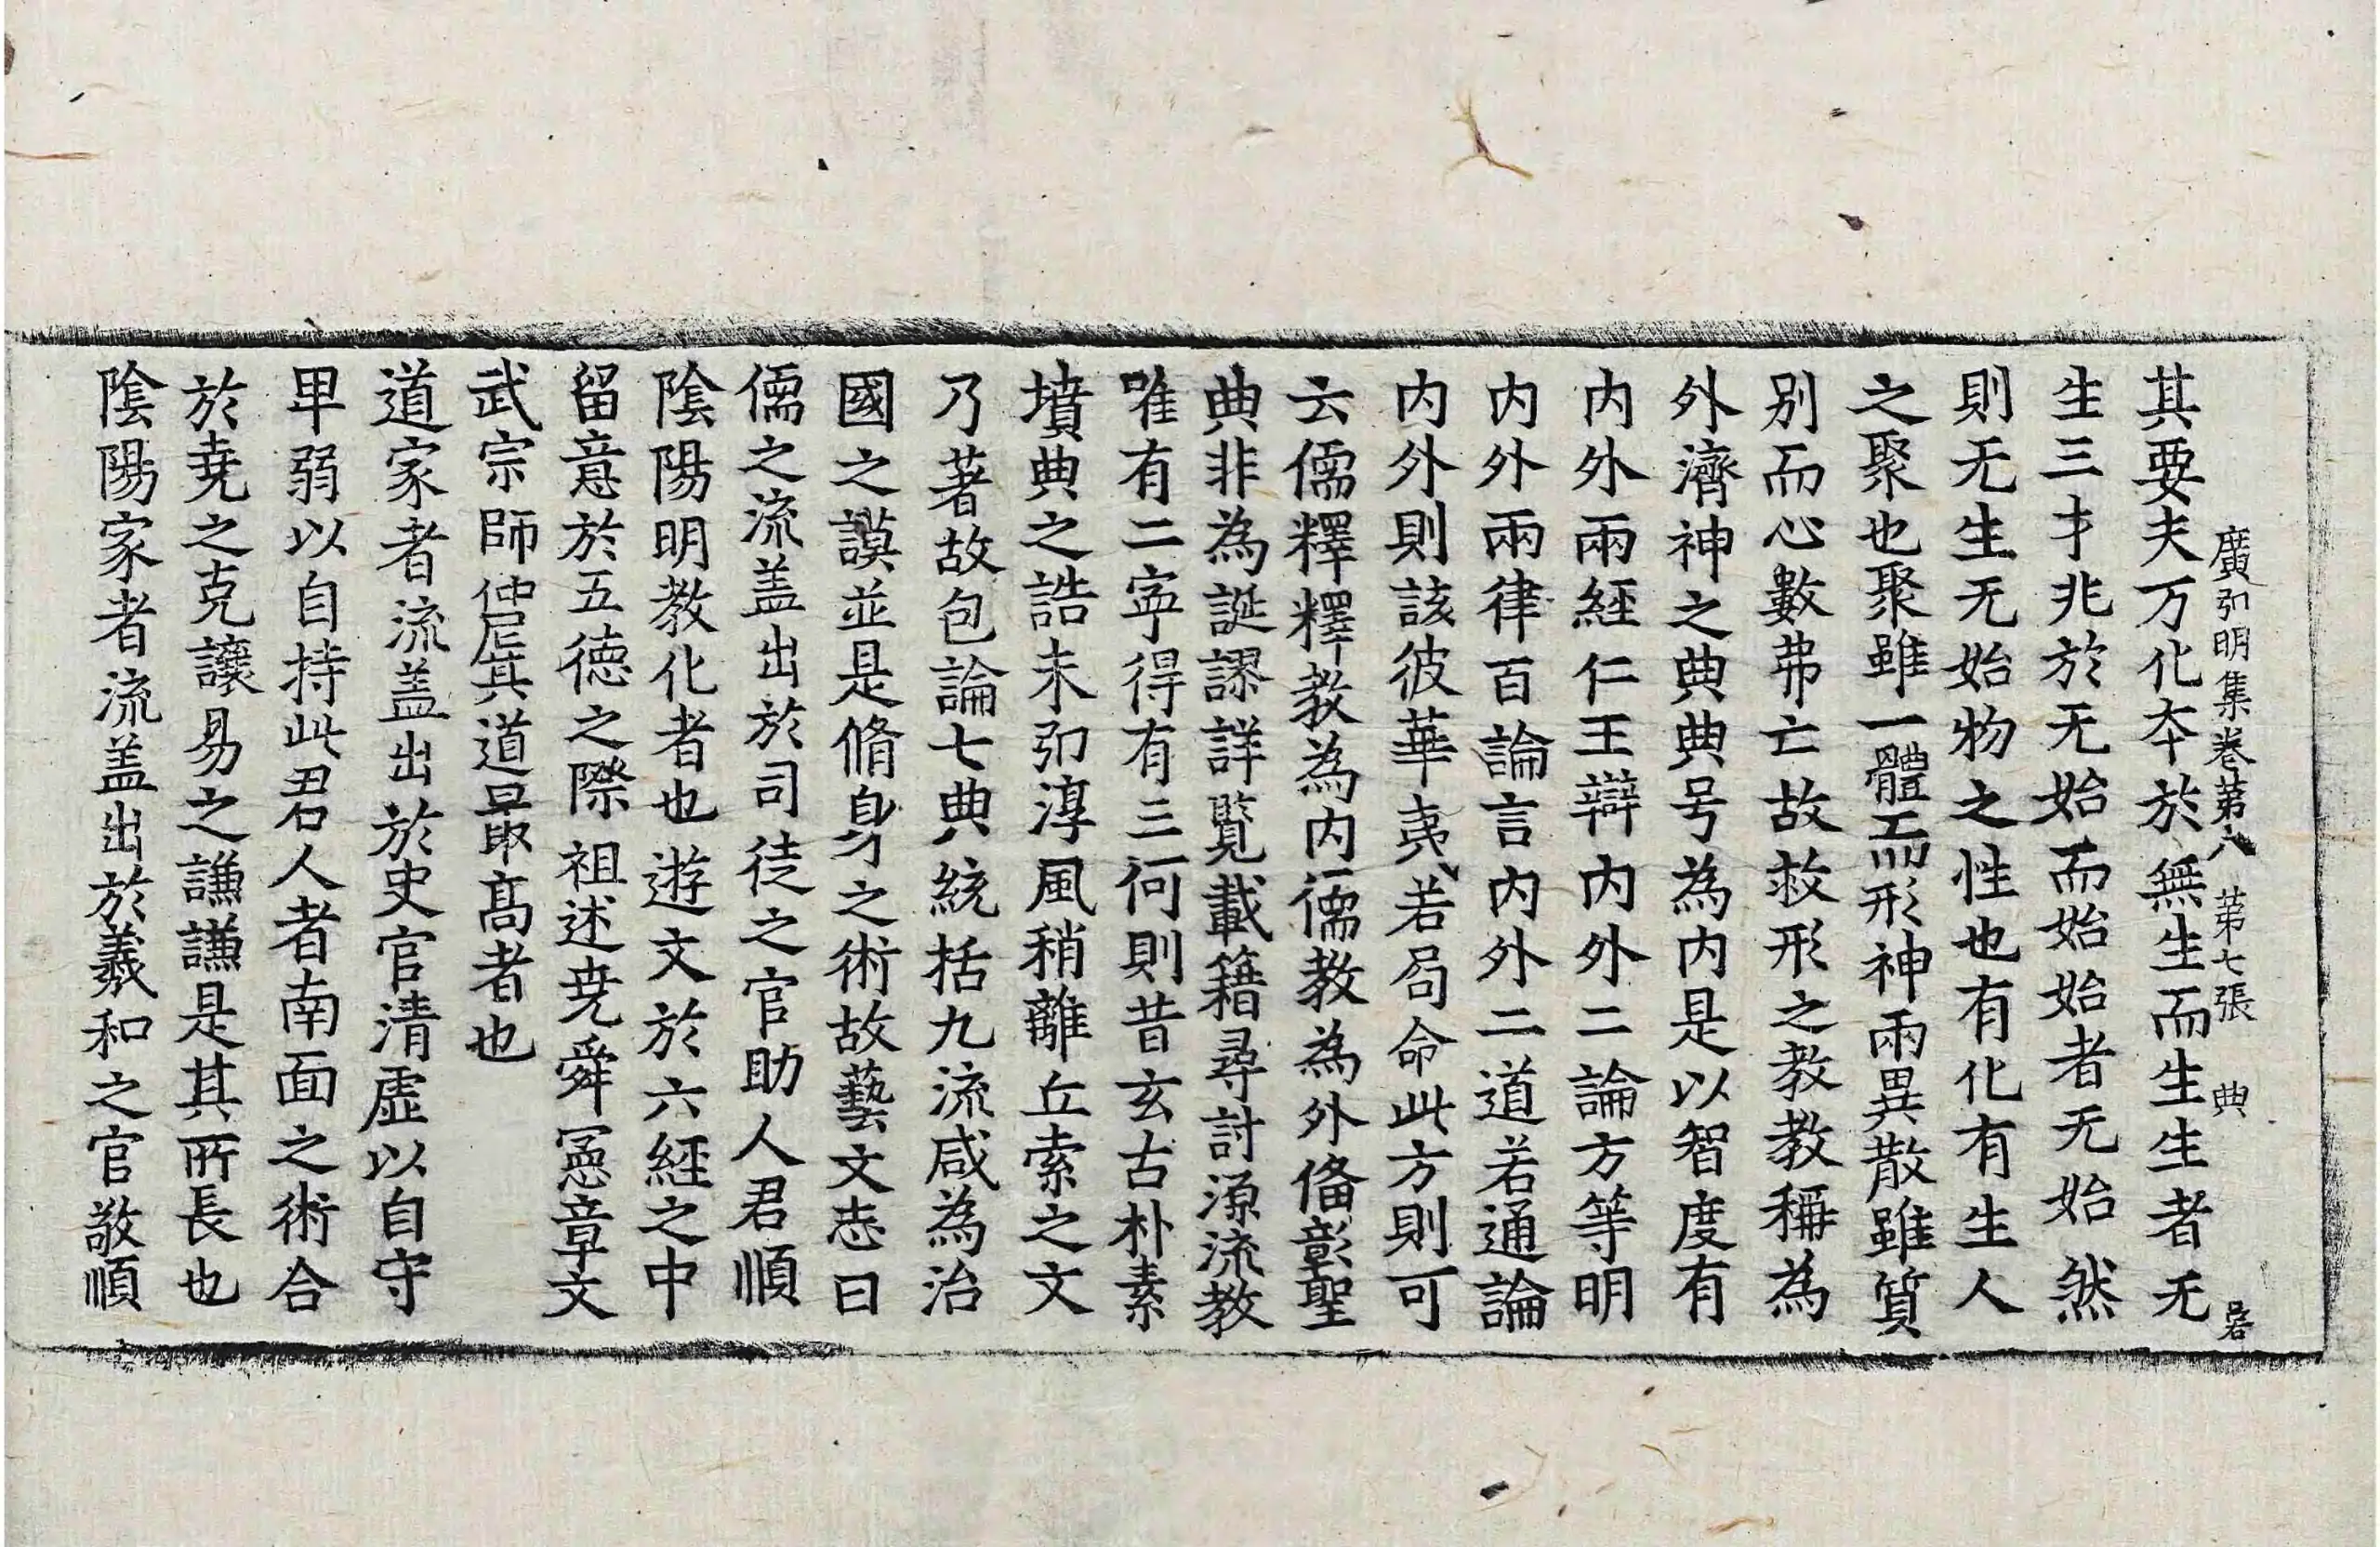 廣弘明集卷第八 第七張 典
其要夫万化夲於無生而生生者无
生三才兆於无始而始始者无始然
則无生无始物之性也有化有生人
之聚也聚雖一體而形神兩異散雖質
別而心數弗亡故救形之教教稱為
外濟神之典典号為内是以智度有
内外兩經仁王辯内外二論方等明
内外兩律百論言内外二道若通論
内外則該彼華夷若局命此方則可
云儒釋釋教為内儒教為外俻彰聖
典非為誕謬詳覽載籍尋討源流教
唯有二寧得有三何則昔玄古朴素
墳典之誥未弘淳風稍離丘索之文
乃著故包論七典統括九流咸為治
國之謨並是脩身之術故藝文志曰
儒之流盖出於司徒之官助人君順
陰陽明教化者也遊文於六經之中
留意於五德之際祖述尭舜憲章文
武宗師仲尼其道最髙者也
道家者流盖出於史官清虛以自守
卑弱以自持此君人者南面之術合
於尭之克讓易之謙謙是其所長也
陰陽家者流盖出於羲和之官敬順